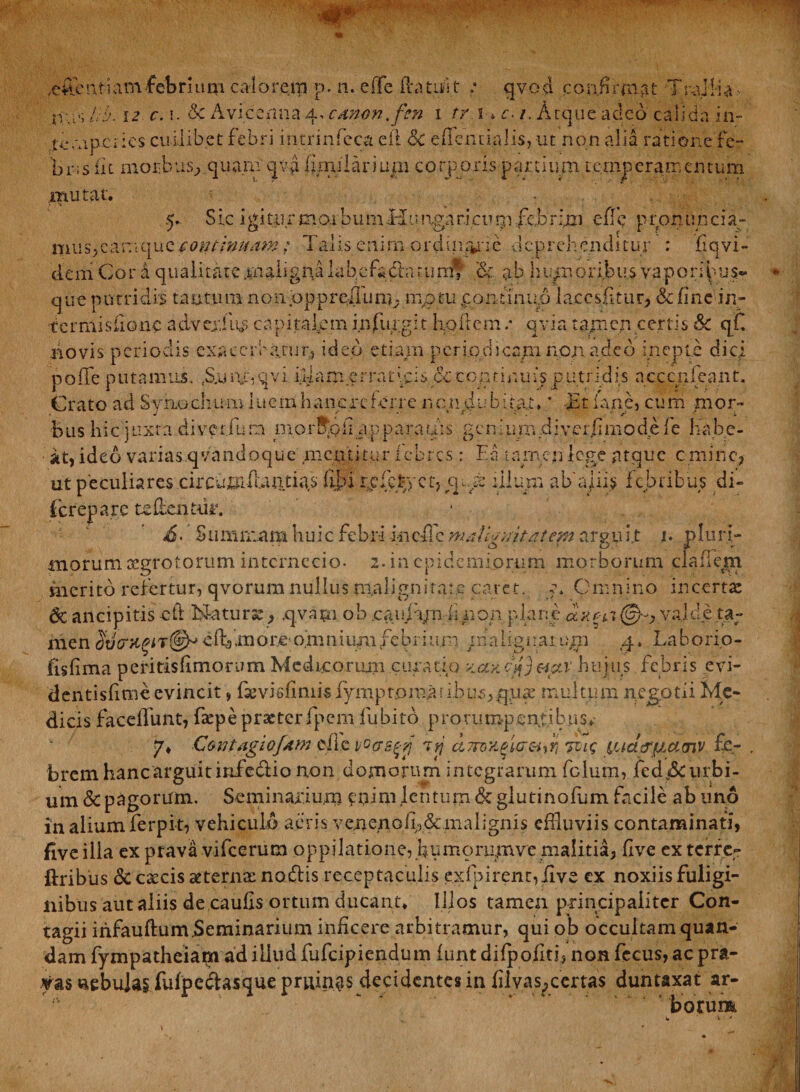 eſſentiam febrium calorem p. n. eſſe ſtatuit : qvod confirmat Trallia-
nus lib. 12 c. 1. & Avicenna 4. canon. fen 1 tr 1. c. 1. Atque adeò calida in-
temperies cuilibet febri intrinſeca eſt & eſſentialis, ut non aliâ ratione fe-
bris ſit morbus, quam qvâ ſimilarium corporis partium temperamentum
mutat.
5. Sic igitur morbum Hungaricum febrim eſſe pronuncia-
mus, eamque continuam : Talis enim ordinariè deprehenditur : ſiqvi-
dem Cor à qualitate malignâ labefactatum, & ab humoribus vaporibus-
que putridis tantum non oppreſſum, motu continuò lacesſitur, & ſine in-
termisſione adverſus capitalem inſurgit hoſtem : qvia tamen certis & qſ.
novis periodis exacerbatur, ideò etiam periodicam non adeò ineptè dici
poſſe putamus. Sunt, qvi illam erraticis & continuis putridis accenſeant.
Crato ad Synochum luem hanc referre non dubitat. Et ſanè, cum mor-
bus hic juxta diverſum morboſi apparatus genium diverſimodè ſe habe-
at, ideò varias qvandoque mentitur febres : Ea tamen lege atque omine,
ut peculiares circumſtantias ſibi reſervet, quæ illum ab aliis febribus di-
ſcrepare teſtentur.
6. Summam huic febri ineſſe malignitatem arguit 1. pluri-
morum ægrotorum internecio. 2. in epidemiorum morborum claſſem
meritò refertur, qvorum nullus malignitate caret. 3. Omnino incertæ
& ancipitis eſt Naturæ, qvam ob cauſam ſi non planè ἄκριτ@, valde ta-
men δύσκριτ@ eſt, more omnium febrium malignarum 4. Laborio-
ſisſima peritisſimorum Medicorum curatio hujus febris evi-
dentisſimè evincit, ſævisſimis ſymptomatibus, quæ multum negotii Me-
dicis faceſſunt, ſæpè præter ſpem ſubitò prorumpentibus.
7. Contagioſam eſſe fe-
brem hanc arguit infectio non domorum integrarum ſolum, ſed & urbi-
um & pagorum. Seminarium enim lentum & glutinoſum facilè ab uno
in alium ſerpit, vehiculô aëris venenoſi, & malignis effluviis contaminati,
ſive illa ex pravâ viſcerum oppilatione, humorumve malitiâ, ſive ex terre-
ſtribus & cæcis æternæ noctis receptaculis exſpirent, ſive ex noxiis fuligi-
nibus aut aliis de cauſis ortum ducant. Illos tamen principaliter Con-
tagii infauſtum Seminarium inficere arbitramur, qui ob occultam quan-
dam ſympatheiam ad illud ſuſcipiendum ſunt diſpoſiti, non ſecus, ac pra-
vas nebulas ſuſpectasque pruinas decidentes in ſilvas, certas duntaxat ar-
borum